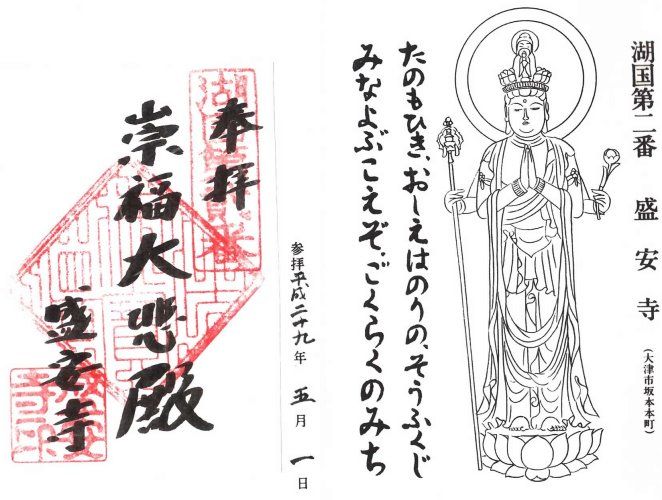 湖国第二番　盛安寺
(大津市坂本本町)
たのもひき、おしえはのりの、そうふくじ
みなよぶこえぞ、ごくらくのみち
参拝平成二十九年 五月 一日
奉拝
崇福大悲殿
盛安寺